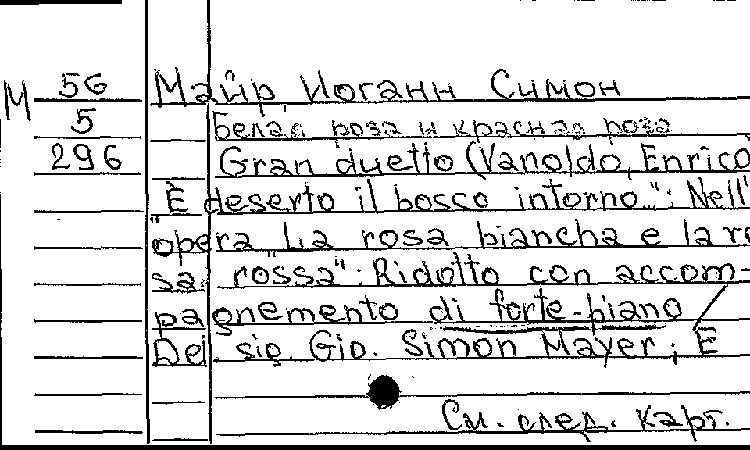 М 56
5
296
Майр, Иоганн Симон
Белая роза и красная роза
Gran duetto (Vanoldo, Enrico
"È deserto il bosco intorno...": Nell'
opera "La rosa biancha e la ro
sa rossa": Ridotto con accom-
pagnemento di forte-piano /
Del sig. Gio. Simon Mayer; E
См. след. карт.